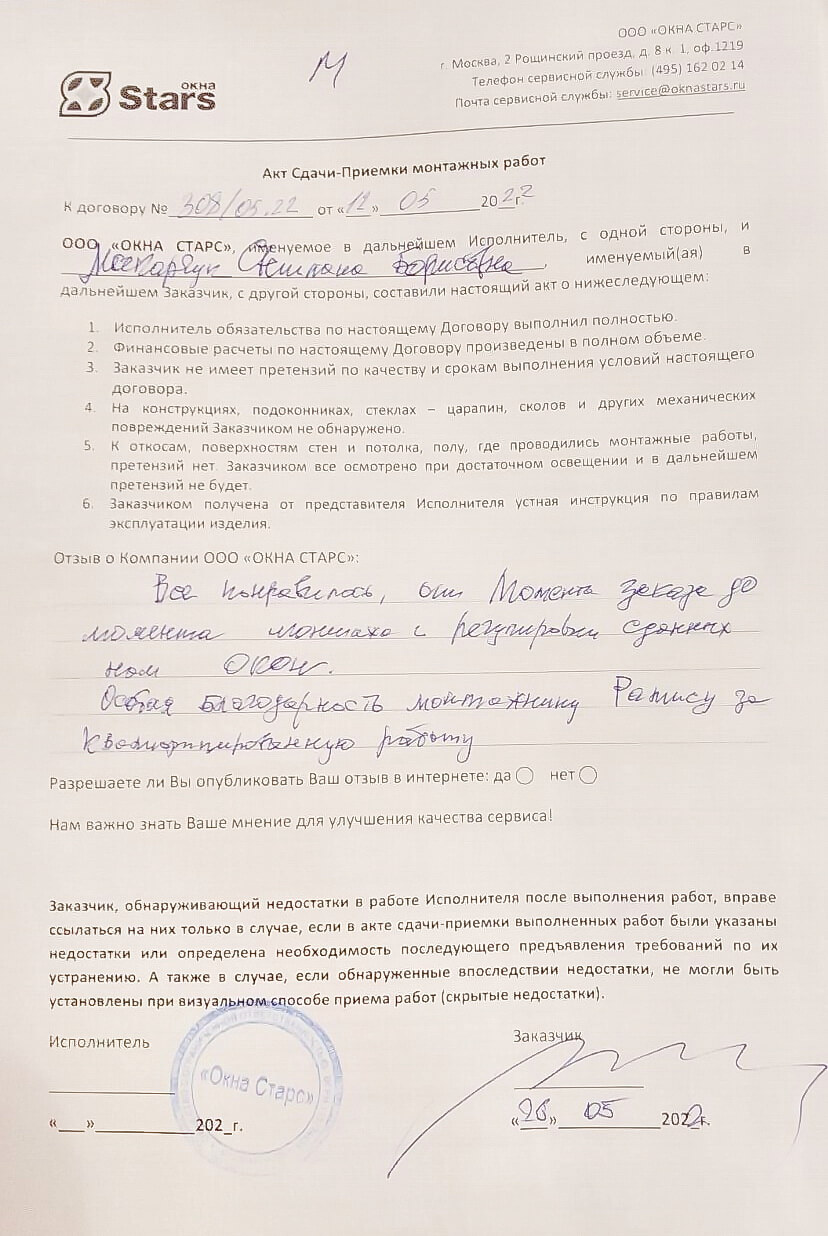 М
ОКНА
Stars
ООО «ОКНА СТАРС»
г. Москва, 2 Рощинский проезд, д. 8 к. 1, оф.1219
Телефон сервисной службы: (495) 162 02 14
Почта сервисной службы: service@oknastars.ru
Акт Сдачи-Приемки монтажных работ
К договору № 308/05.22 от «12» 05 2022 г.
ООО «ОКНА СТАРС», именуемое в дальнейшем Исполнитель, с одной стороны, и
Борисовна, именуемый(ая) в
дальнейшем Заказчик, с другой стороны, составили настоящий акт о нижеследующем:
1. Исполнитель обязательства по настоящему Договору выполнил полностью.
2. Финансовые расчеты по настоящему Договору произведены в полном объеме.
3. Заказчик не имеет претензий по качеству и срокам выполнения условий настоящего
договора.
4. На конструкциях, подоконниках, стеклах – царапин, сколов и других механических
повреждений Заказчиком не обнаружено.
5. К откосам, поверхностям стен и потолка, полу, где проводились монтажные работы,
претензий нет. Заказчиком все осмотрено при достаточном освещении и в дальнейшем
претензий не будет.
6. Заказчиком получена от представителя Исполнителя устная инструкция по правилам
эксплуатации изделия.
Отзыв о Компании ООО «ОКНА СТАРС»:
Все понравилось, от момента заказа до
момента монтажа и регулировки сданных
нам окон.
Особая благодарность монтажнику Рамису за
квалифицированную работу
Разрешаете ли Вы опубликовать Ваш отзыв в интернете: да нет
Нам важно знать Ваше мнение для улучшения качества сервиса!
Заказчик, обнаруживающий недостатки в работе Исполнителя после выполнения работ, вправе
ссылаться на них только в случае, если в акте сдачи-приемки выполненных работ были указаны
недостатки или определена необходимость последующего предъявления требований по их
устранению. А также в случае, если обнаруженные впоследствии недостатки, не могли быть
установлены при визуальном способе приема работ (скрытые недостатки).
Исполнитель
Заказчик
«Окна Старс»
«___»__________202_г.
«26» 05 2022г.